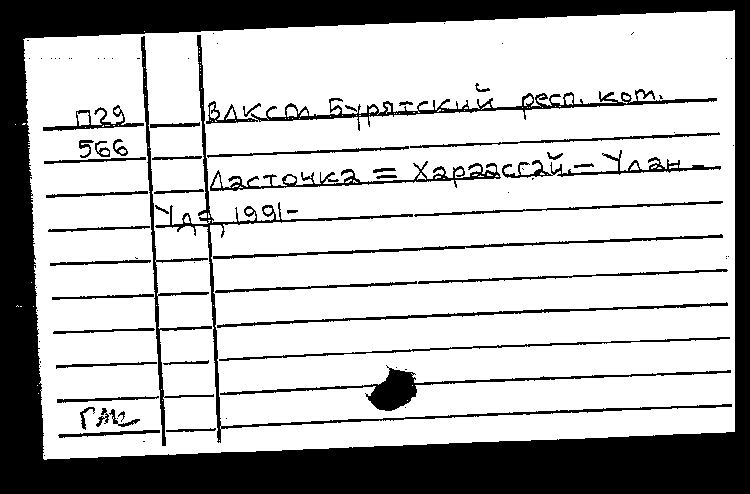 П29 ВЛКСМ. Бурятский респ. ком.
566
Ласточка = Хараасгай. – Улан-
Удэ, 1991-